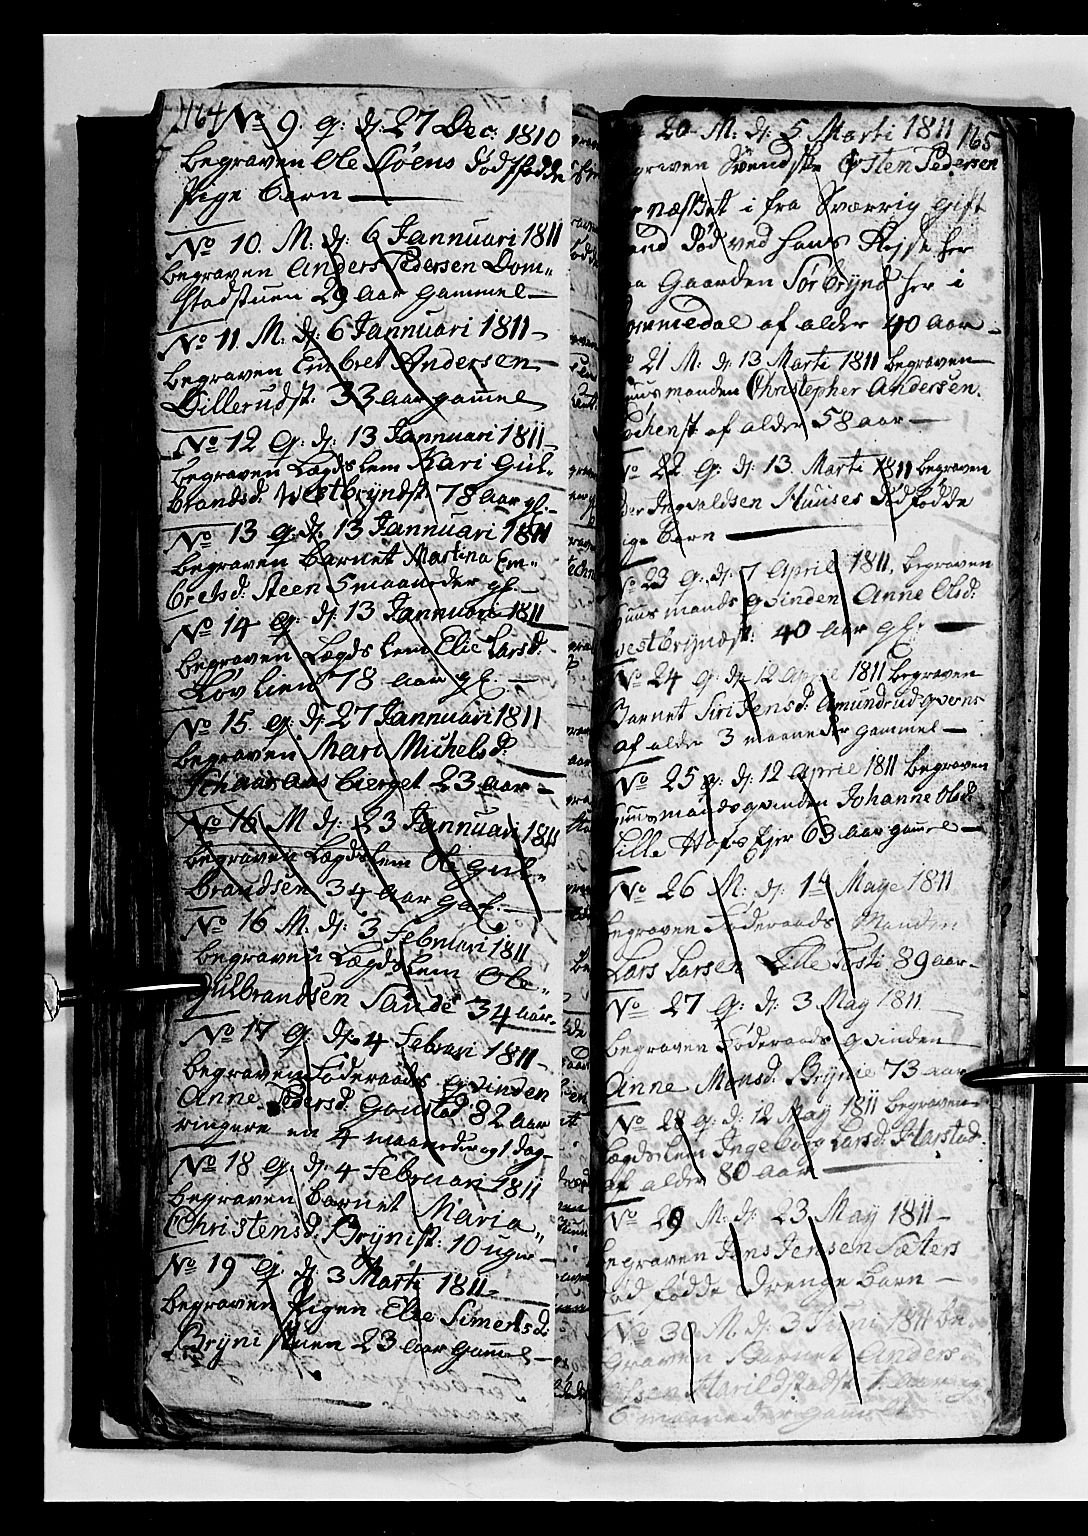 164 No 9. q: dj 27 Dec: 1810
begraven Ole Løens Dødfødde
Pige barn
No 10. M: dj: 6 Jannuari 1811
begraven Anders Pedersen Dom„
stadstuen 29 aar gammel
No 11 M: dj: 6 Jannuari 1811
begraven Embret Andersen
Dillerudst: 33 aar gamel
No 12 q: dj: 13 Jannuari 1811
begraven Lægdslem Kari Gul„
brandsd: Westbryndst: 78 aar gl:
No 13 q: dj: 13 Jannuari 1811
begraven barnet Martina Em„
bretsd: Steen 5 maaneder gl:
No 14 q: dj: 13 Jannuari 1811
begraven Lægdslem Elie Larsd:
Løvlien 78 aar gl:
No 15 q: dj: 27 Jannuari 1811
begraven Mari Michelsd:
Schaaraas bierget 23 aar
No 16 M dj: 23 Jannuari 1811
begraven Lægdslem Ole Gul„
brandsen 34 aar gl:
No 16 M: dj: 3 Februari 1811
begraven Lægdslem Ole„
Gulbrandsen Sande 34 aar
No 17 q: dj: 4 Februari 1811
begraven Føderaads qvinden
Anne Pedersd: Gonstad: 82 aar
ringere en 4 maaneder og 1 dag
No 18 q: dj: 4 Februari 1811
begraven barnet Maria„
Christensd: Brynist: 10 uger
No 19 q: dj 3 Marti 1811
begraven Pigen Elie Simensd:
Brynistuen 23 aar gammel
20 M: dj: 5 Marti 1811 165
graven Svendske Østen Pedersen
næsset i fra Sværrig Gift
and Død ved hans Rejse her
a Gaarden Sørbrynd her i
ommedal af alder 40 aar
21 M: dj: 13 Marti 1811 begraven
uusmanden Christopher Andersen
af alder 58 aar
No 22 q: dj: 13. Marti 1811 begraven
Peder Ingvaldsen Huuses Dødfødde
ige barn
No 23 q: dj: 7 April 1811, begraven
Huusmands qvinden Anne Olsd:
westbryndst: 40 aar gl:
No 24 q: dj 12 April 1811 begraven
Barnet Siri Jensd: Amundrudqvern
af alder 3 maaneder gammel
No 25 q: dj: 12 April 1811 begraven
Huusmandsqvinden Johanne Olsd:
Lille Hofs Ejer 63 aar gamel
No 26 M: dj: 14 Maye 1811
begraven Føderaads Manden
Lars Larsen Lille Tosti 89 aar
No 27 q: dj: 3 May 1811
begraven Føderaads qvinden
Anne Monsd: Brynie 73 aar
No 28 q: dj: 12 May 1811 begraven
Lægdslem Ingeborg Larsd: Harstad:
af alder 80 aar
No 29 M: dj: 23 May 1811
begraven Jens Jensen Sæters
død fødde Drenge barn
No 30 M: dj: 3 Juni 1811 be„
graven Barnet Anders
Olsen Harildstadst: 1 aar og
6 maaneder gammel